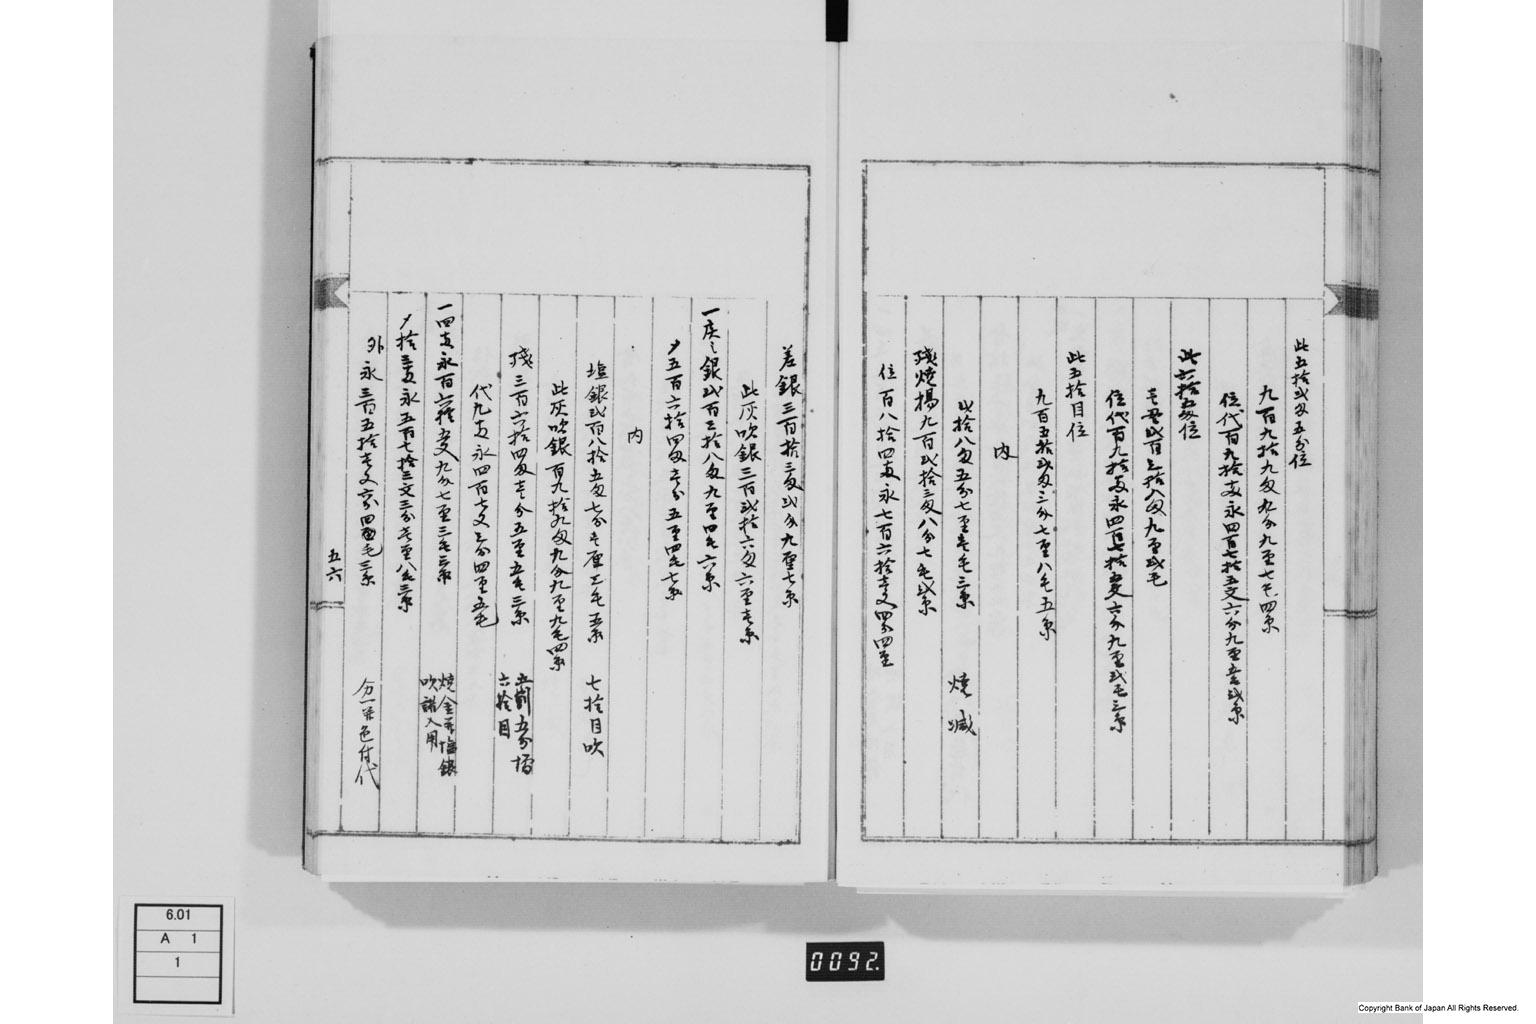 此五拾弐匁五分位
九百九拾九匁九分九厘七毛四糸
位代百九拾両永四百七拾五文六分九厘壱毛弐糸
此六拾五匁位
壱貫弐百三拾八匁九厘弐毛
位代百九拾両永四百七拾五文六分九厘弐毛三糸
此五拾目位
九百五拾弐匁三分七厘八毛五糸
内
弐拾八匁五分七厘壱毛三糸 焼減
残焼揚九百弐拾三匁八分七毛弐糸
位百八拾四両永七百六拾壱文四分四厘
差銀三百拾三匁弐分九厘七糸
此灰吹銀三百弐拾六匁六厘壱糸
一灰之銀弐百三拾八匁九厘四毛六糸
〆五百六拾四匁壱分五厘四毛七糸
内
塩銀弐百八拾五匁七分壱厘三毛五糸 七拾目吹
此灰吹銀百九拾九匁九分九厘九毛四糸
残三百六拾四匁壱分五厘五毛三糸 五割五分増 六拾目
代九両永四百七文三分四厘五毛
一四両永百六拾五文九分七厘三毛三糸 焼金并塩銀 吹諸入用
〆拾三両永五百七拾三文三分壱厘八毛三糸
外永三百五拾壱文六分四毛三糸 分一并色付代
五六
6.01
A 1
1
0092.
Copyright Bank of Japan All Rights Reserved.